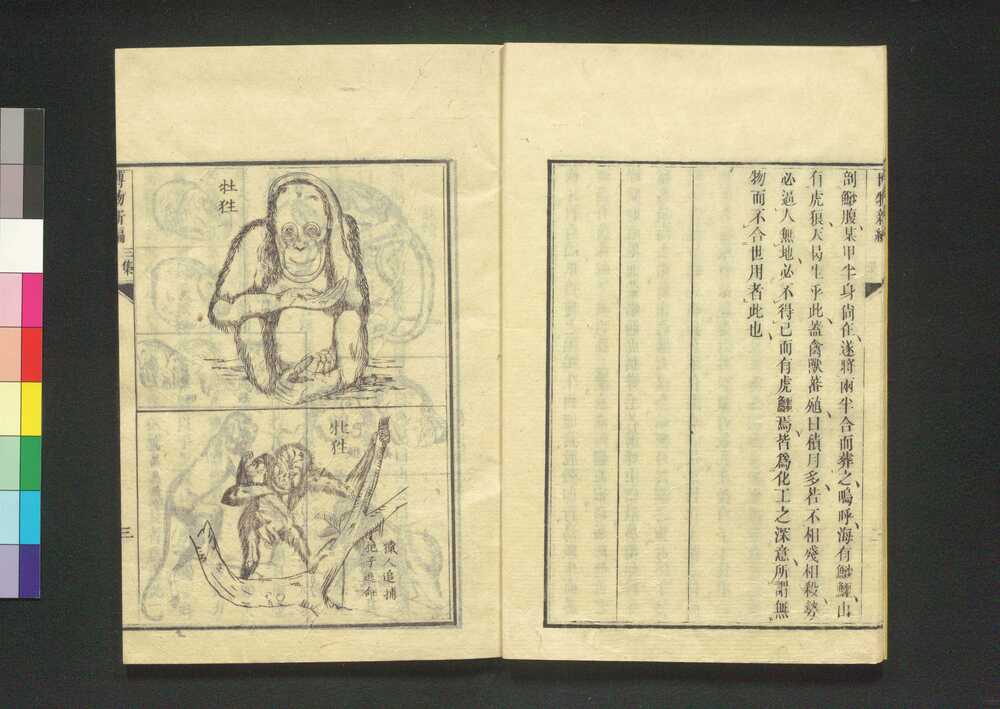 博物新編
剖鯊腹某甲半身尙在遂將兩半合而葬之嗚呼海有鯊鱷山
有虎狼天曷生乎此蓋禽獸蕃殖日積月多若不相殘相殺勢
必逼人無地必不得已而有虎鱷焉皆爲化工之深意所謂無
物而不合世用者此也
牡狌
牝狌
獵人追捕
抱子逃命
博物新編 三集
三